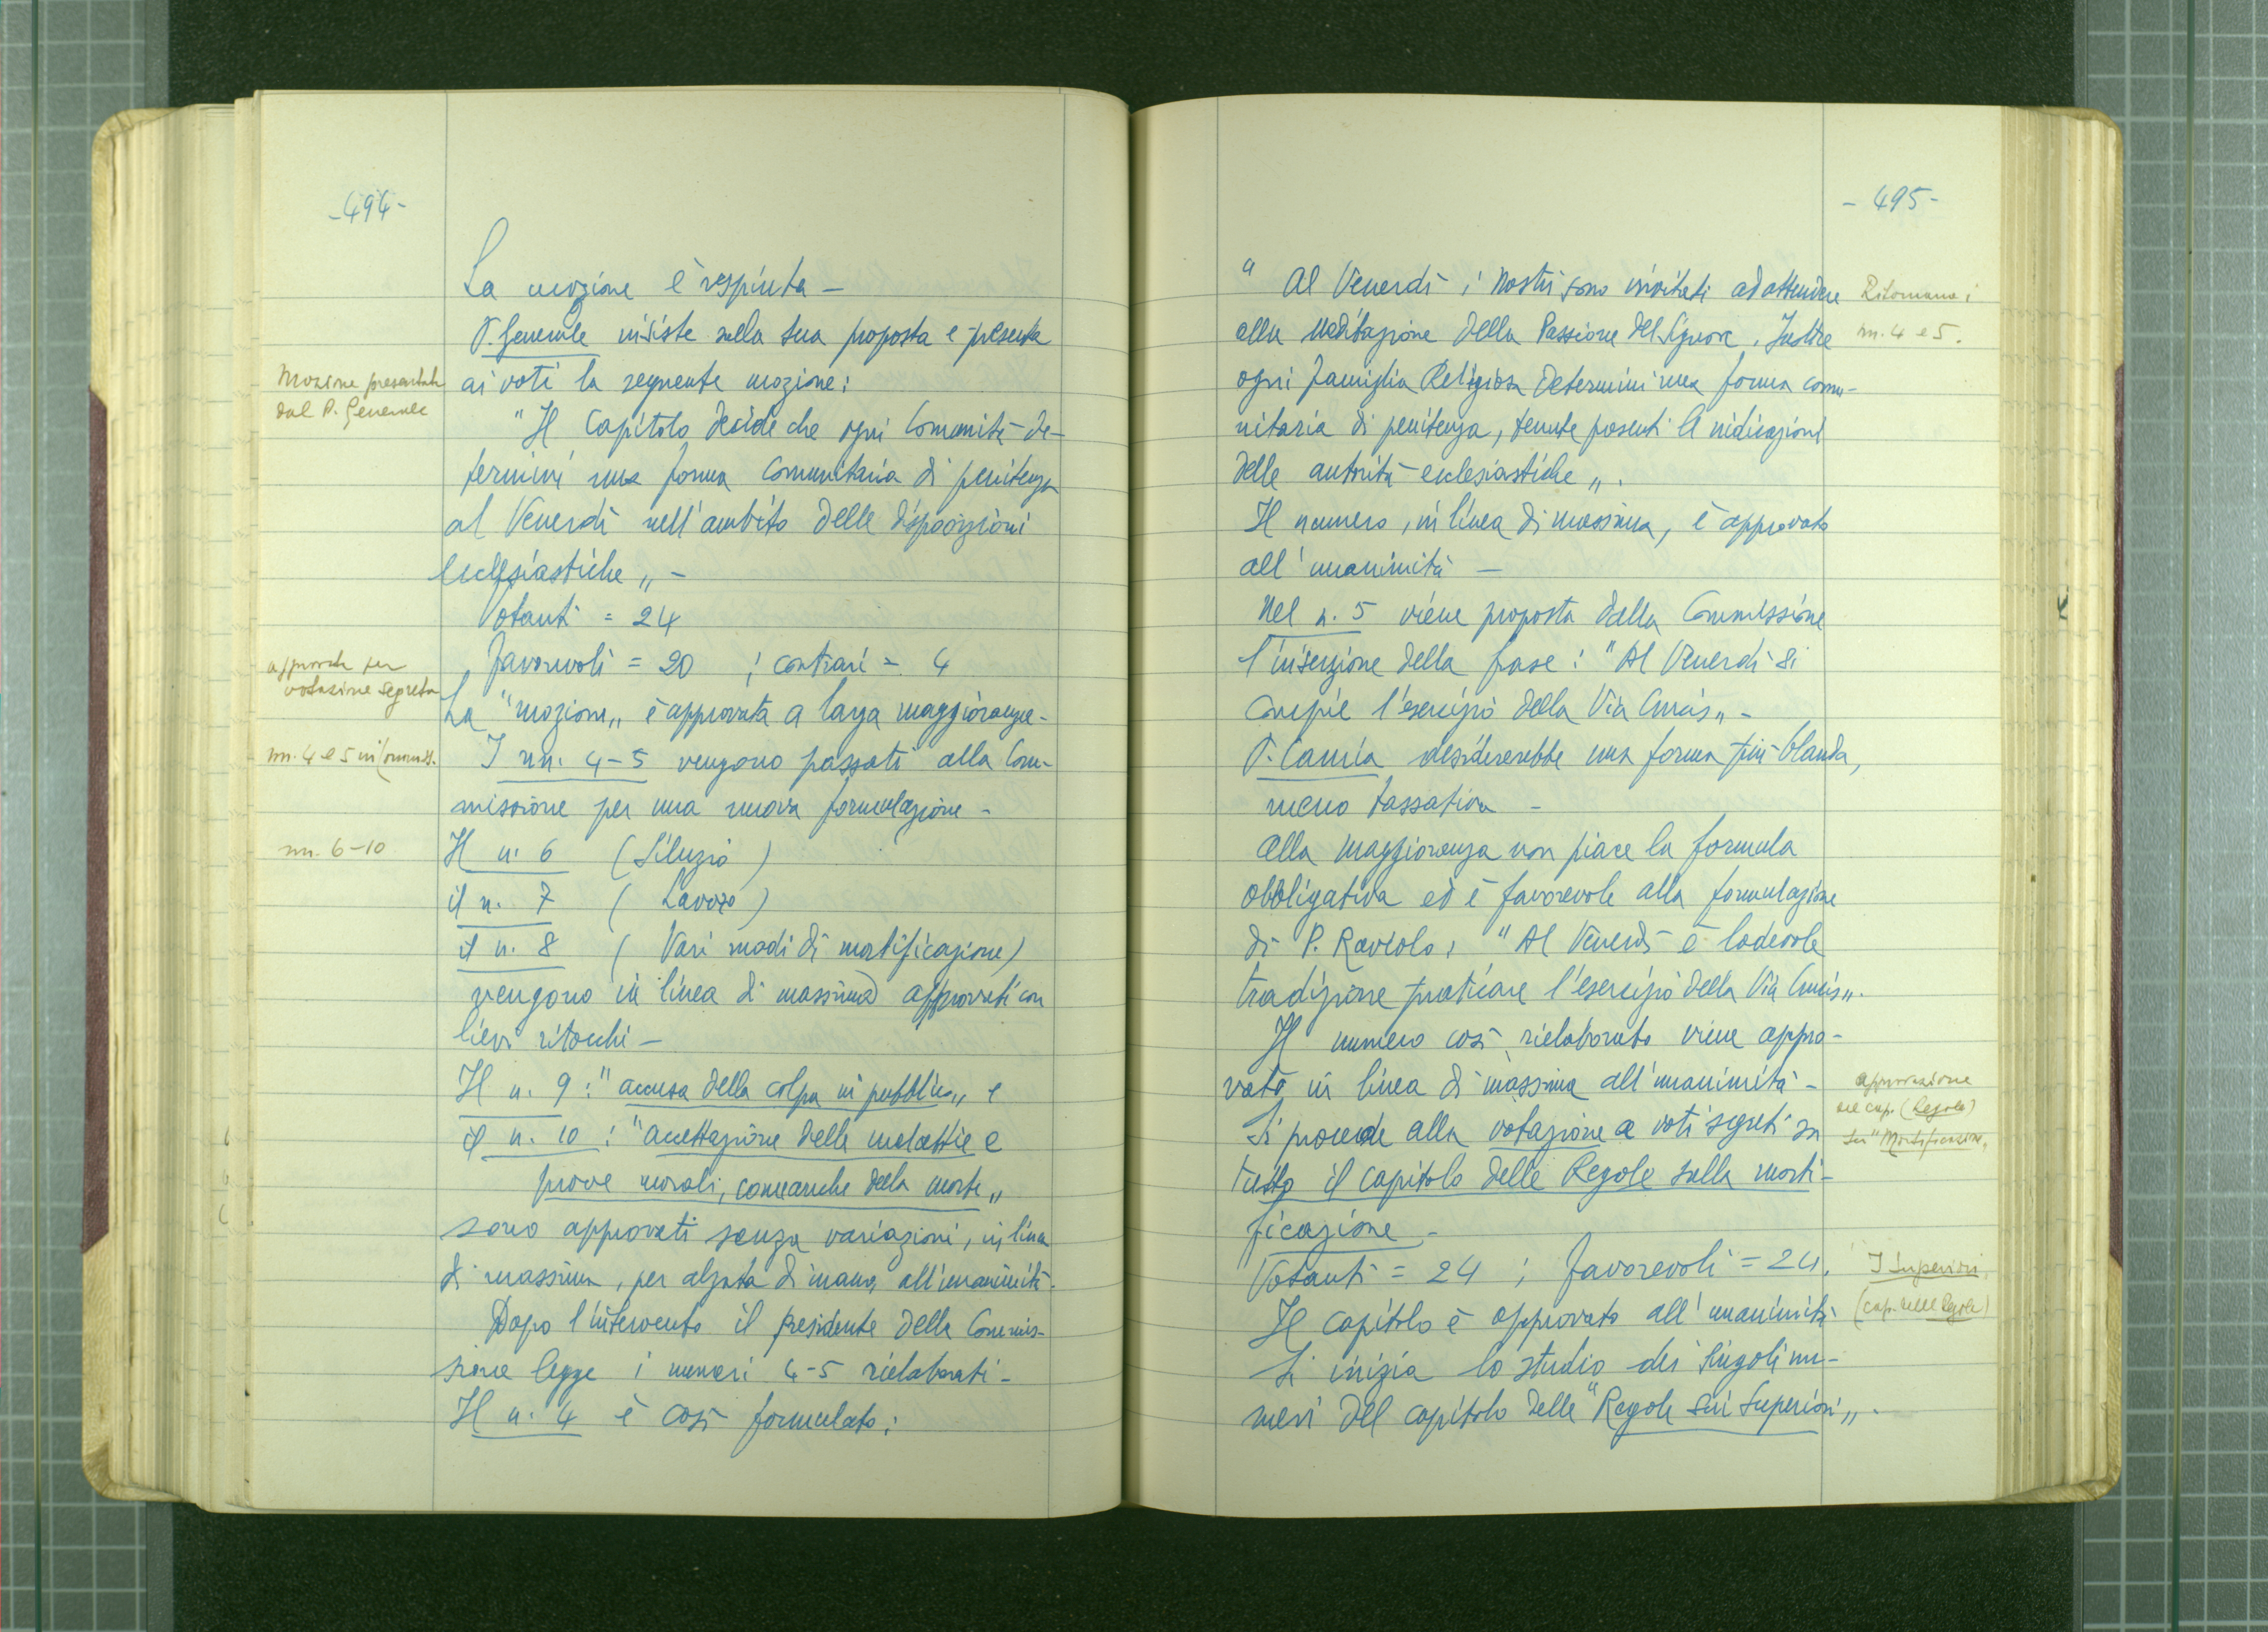 -494-
La mozione è respinta -
P. Generale insiste sulla sua proposta e presenta
Mozione presentata
dal P. Generale
ai voti la seguente mozione:
"Il Capitolo decide che ogni Comunità de-
termini una forma comunitaria di penitenza
al Venerdì nell'ambito delle disposizioni
ecclesiastiche„ -
Votanti = 24
approvata per
votazione segreta
Favorevoli = 20 ; contrari = 4
La "mozione„ è approvata a larga maggioranza -
nn. 4 e 5 in Commiss.
I nn. 4-5 vengono passati alla Com-
missione per una nuova formulazione -
nn. 6-10
Il n. 6 (Silenzio)
il n. 7 (Lavoro)
il n. 8 (Vari modi di mortificazione)
vengono in linea di massima approvati con
lievi ritocchi -
Il n. 9: "accusa della colpa in pubblico„ e
il n. 10: "accettazione delle malattie e
prove morali, come anche della morte„
sono approvati senza variazioni, in linea
di massima, per alzata di mano, all'unanimità -
Dopo l'intervento il presidente della Commis-
sione legge i numeri 4-5 rielaborati -
Il n. 4 è così formulato:
- 495 -
" Al Venerdì i Nostri sono invitati ad attendere
alla meditazione della Passione del Signore. Inoltre
ogni famiglia Religiosa determini una forma comu-
nitaria di penitenza, tenute presenti le indicazioni
delle autorità ecclesiastiche„.
Ritornano i
nn. 4 e 5.
Il numero, in linea di massima, è approvato
all'unanimità -
Nel n. 5 viene proposta dalla Commissione
l'inserzione della frase: "Al Venerdì si
compie l'esercizio della Via Crucis„ -
P. Camia desidererebbe una forma più blanda,
meno tassativa -
Alla maggioranza non piace la formula
obbligativa ed è favorevole alla formulazione
di P. Raviolo: "Al Venerdì è lodevole
tradizione praticare l'esercizio della Via Crucis„.
Il numero così rielaborato viene appro-
vato in linea di massima all'unanimità -
Si procede alla votazione a voti segreti su
tutto il capitolo delle Regole sulla morti-
ficazione -
approvazione
del cap. (Regole)
su "Mortificazione„
Votanti = 24 ; Favorevoli = 24.
Il capitolo è approvato all'unanimità
I Superiori
(cap. delle Regole)
Si inizia lo studio dei singoli nu-
meri del capitolo delle "Regole sui Superiori„.